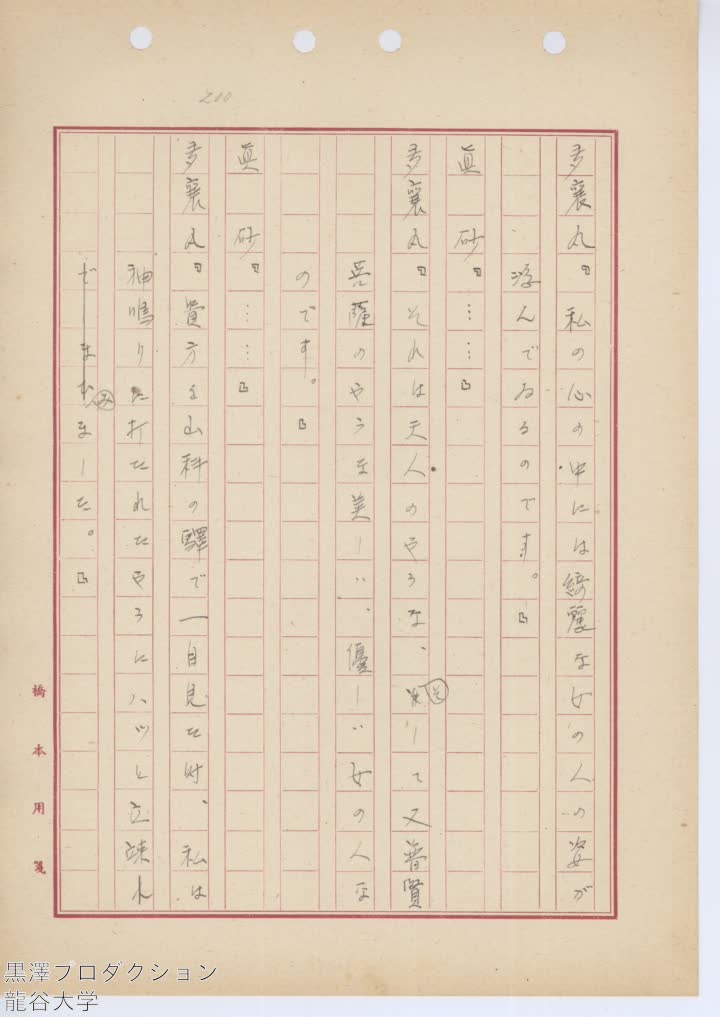 200
多襄丸『私の心の中には綺麗な女の人の姿が
浮んでゐるのです。』
眞 砂『……』
多襄丸『それは天人のやうな、そして又普賢
菩薩のやうな美しい、優しい女の人な
のです。』
眞 砂『……』
多襄丸『貴方を山科の驛で一目見た時、私は
神鳴りに打たれたやうにハッと立竦ん
でしまひました。』
み
そ
橋本用箋
黒澤プロダクション
龍谷大学